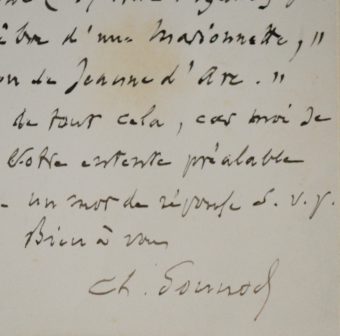 èbre d'une Marionnette,"
on de Jeanne d'Arc."
de tout cela, car moi je
Votre entente préalable
un mot de réponse s. v. p.
Bien à vous
Ch. Gounod